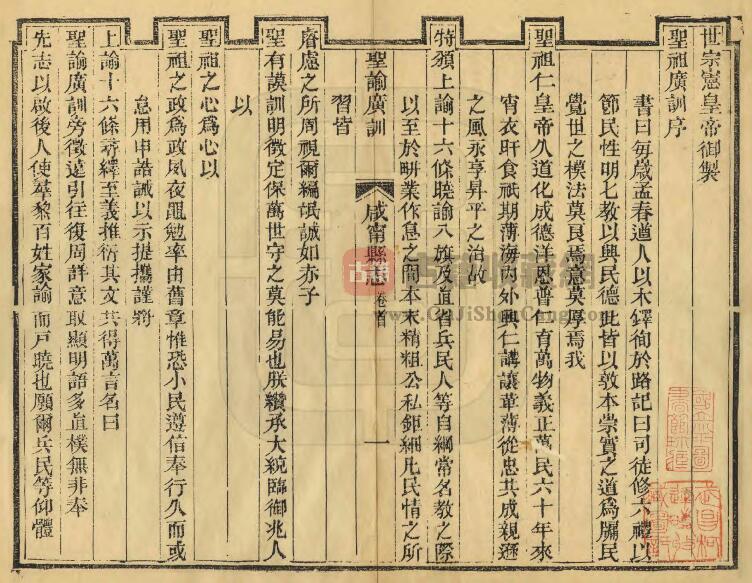 世宗憲皇帝御製
聖祖廣訓序
書曰每歲孟春遒人以木鐸徇於路記曰司徒修六禮以
節民性明七教以興民德此皆以敦本崇實之道為牖民
覺世之模法莫良焉意莫厚焉我
聖祖仁皇帝久道化成德洋恩普仁育萬物義正萬民六十年來
宵衣旰食祇期薄海內外興仁講讓革薄從忠共成親遜
之風永享昇平之治故
特頒上諭十六條曉諭八旗及直省兵民人等自綱常名教之際
以至於畊業作息之間本末精粗公私鉅細凡民情之所
聖諭廣訓
習皆
咸甯縣志
卷首
一
睿慮之所周視爾編氓誠如赤子
聖有謨訓明徵定保萬世守之莫能易也朕纘承大統臨御兆人
以
聖祖之心為心以
聖祖之政為政夙夜黽勉率由舊章惟恐小民遵信奉行久而或
怠用申誥誡以示提攜謹將
上諭十六條尋繹至義推衍其文共得萬言名曰
聖諭廣訓旁徵遠引往復周詳意取顯明語多直樸無非奉
先志以啟後人使羣黎百姓家諭而戶曉也願爾兵民等仰體
古籍收藏網